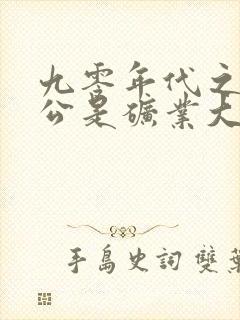 九零年代之
公是礦業大
手島史詞 雙葉